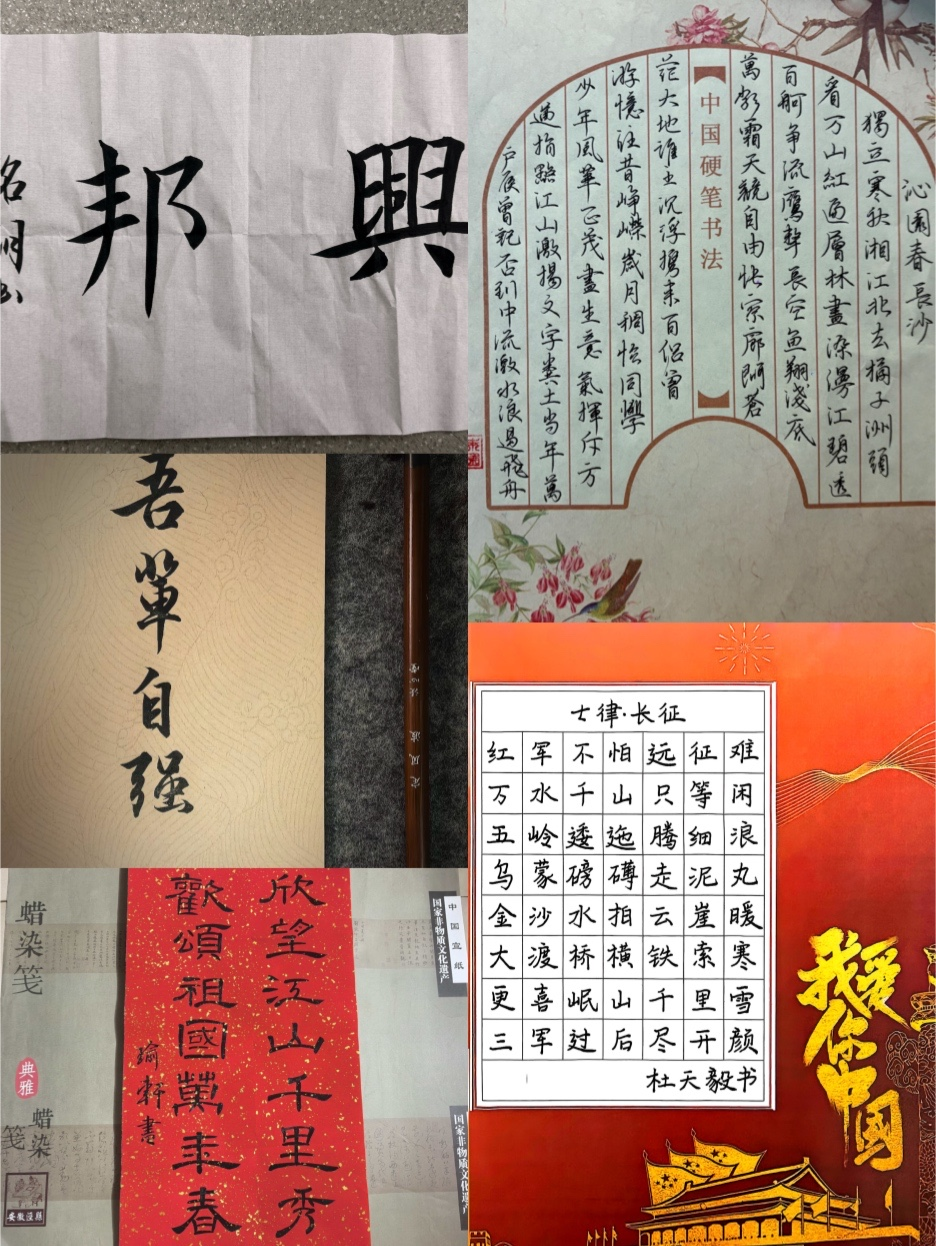 興邦
名明
沁園春長沙
獨立寒秋湘江北去橘子洲頭
看万山紅遍層林盡染漫江碧透
百舸争流鷹擊長空魚翔淺底
萬類霜天競自由怅寥廓問蒼
【中国硬笔书法】
茫大地谁主沉浮攜来百侣曾
游憶往昔峥嵘歲月稠恰同學
少年風華正茂書生意氣揮斥方
遒指點江山激揚文字糞土当年萬
户侯曾記否到中流激水浪遏飛舟
吾輩自强
定风波
七律·长征
红军不怕远征难
万水千山只等闲
五岭逶迤腾细浪
乌蒙磅礴走泥丸
金沙水拍云崖暖
大渡桥横铁索寒
更喜岷山千里雪
三军过后尽开颜
杜天毅书
我爱你中國
中国宣纸
国家非物质文化遗产
欣望江山千里秀
歡頌祖國萬年春
瑜軒書
蜡染笺
典雅
蜡染笺
国家非物质文化遗产